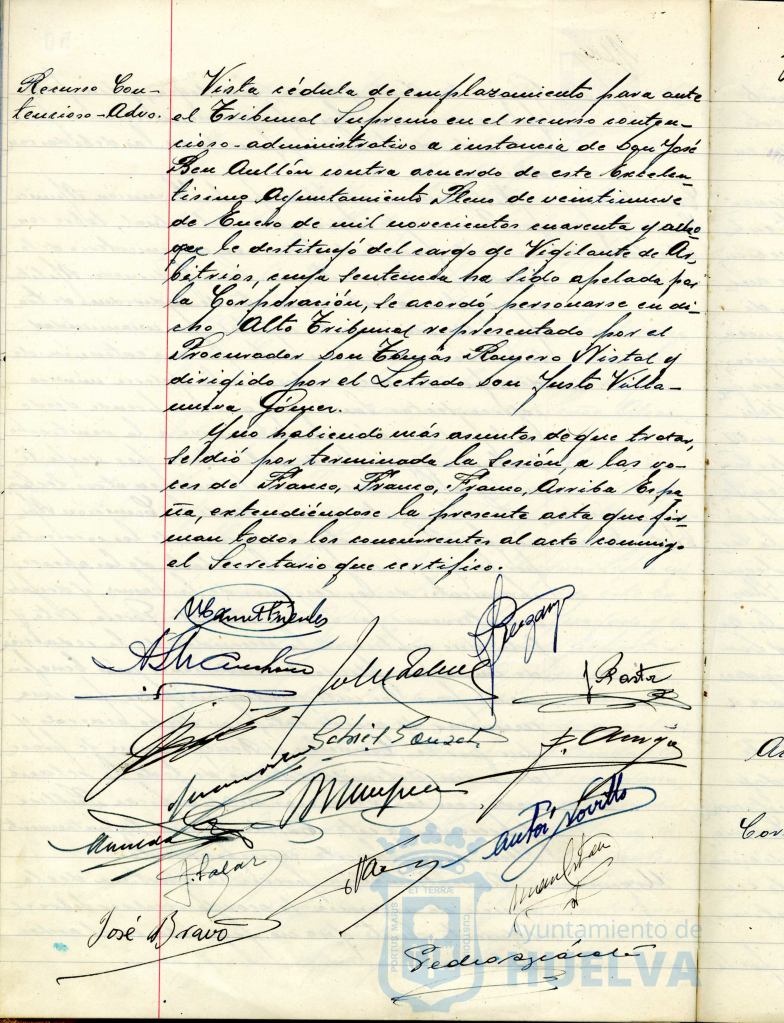 Recurso Con-
tencioso-Advo.
Vista cédula de emplazamiento para ante
el Tribunal Supremo en el recurso conten-
cioso-administrativo a instancia de Don José
Ben Aullón contra acuerdo de este Excelen-
tísimo Ayuntamiento Pleno de veintinueve
de Enero de mil novecientos cuarenta y ocho
que le destituyó del cargo de Vigilante de Ar-
bitrios, cuya sentencia ha sido apelada por
la Corporación, se acordó personarse en di-
cho Alto Tribunal representado por el
Procurador Don Tomás Romero Nistal y
dirigido por el Letrado Don Justo Villa-
nueva Gómez.
Y no habiendo más asuntos de que tratar,
se dió por terminada la sesión, a las vo-
ces de Franco, Franco, Franco, Arriba Espa-
ña, extendiéndose la presente acta que fir-
man todos los concurrentes al acto conmigo
el Secretario que certifico.
J. Salar
José Bravo
PORTUS MARIS
ET TERRÆ
CUSTODIA
Ayuntamiento de
HUELVA